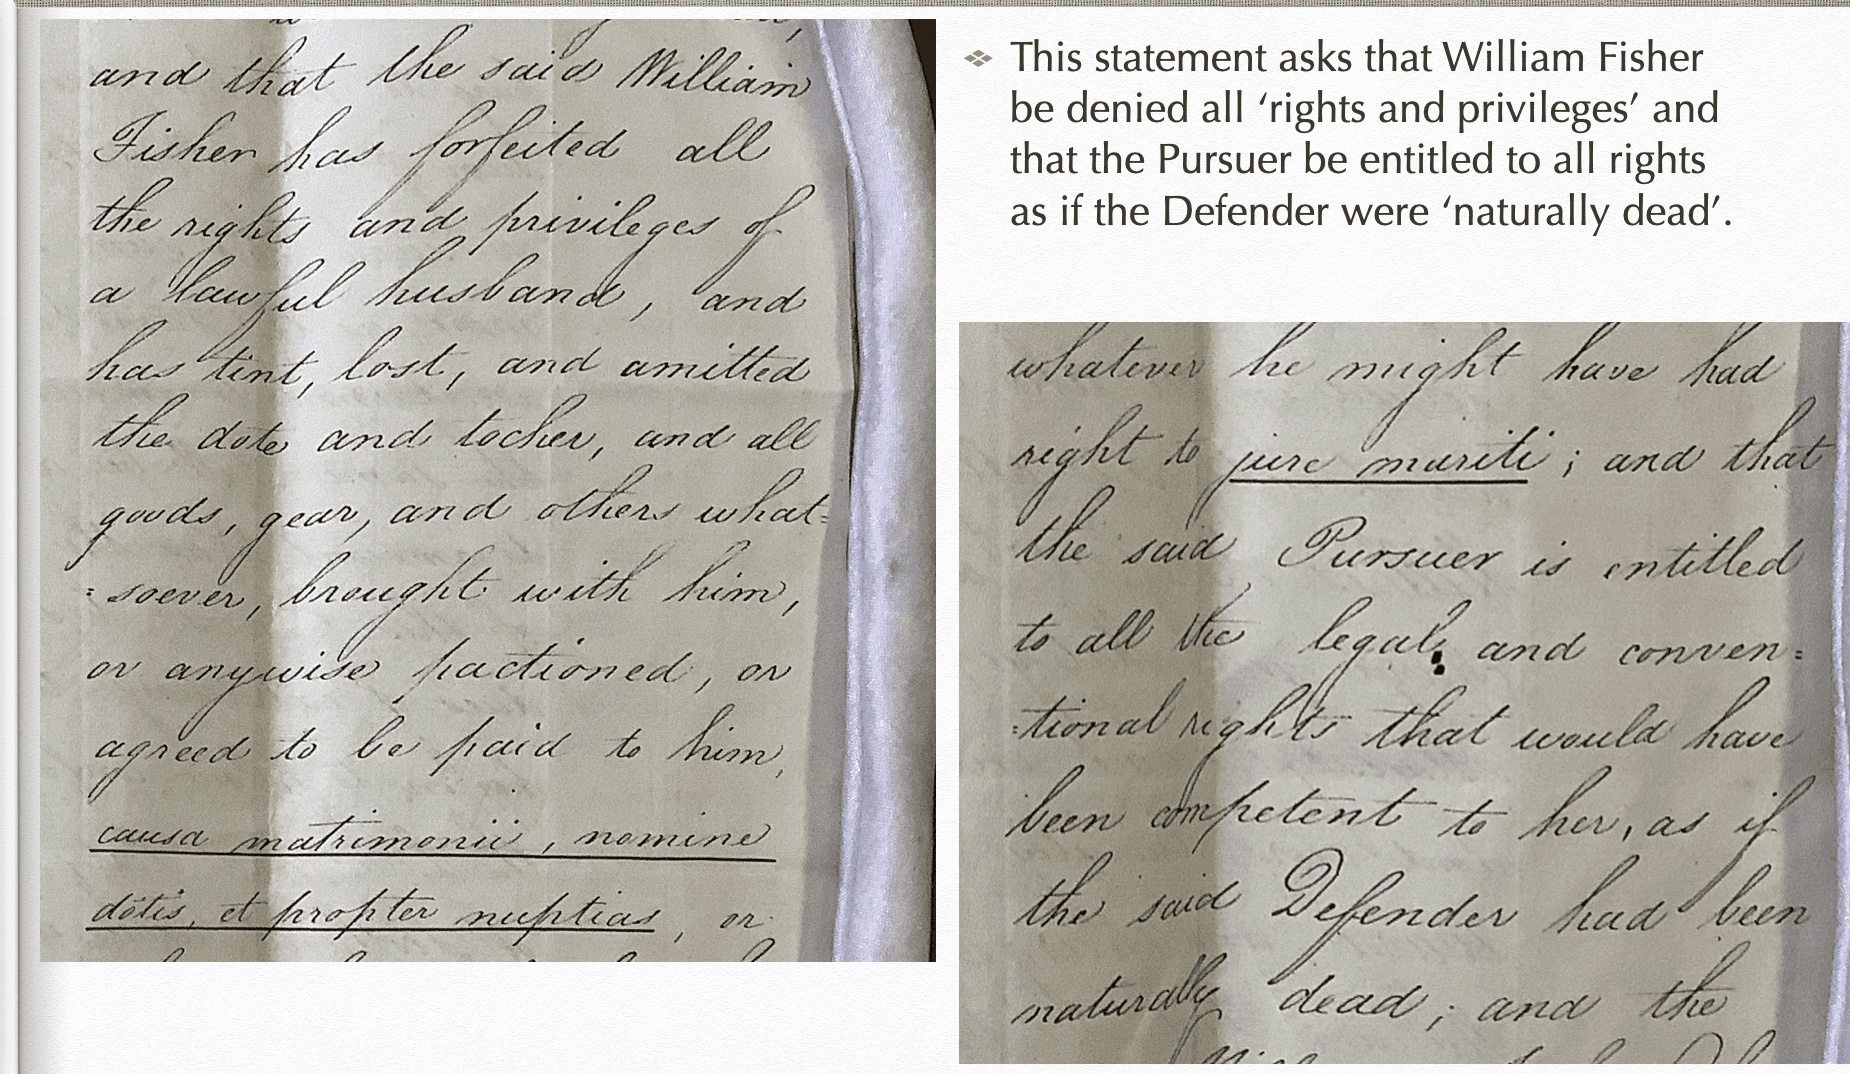 and that the said William
Fisher has forfeited all
the rights and privileges of
a lawful husband, and
has tint, lost, and amitted
the dote and tocher, and all
goods, gear, and others what=
=soever, brought with him,
or anywise pactioned, or
agreed to be paid to him,
causa matrimonii, nomine
dotis, et propter nuptias, or
❖ This statement asks that William Fisher
be denied all ‘rights and privileges’ and
that the Pursuer be entitled to all rights
as if the Defender were ‘naturally dead’.
whatever he might have had
right to jure mariti; and that
the said Pursuer is entitled
to all the legal, and conven=
=tional rights that would have
been competent to her, as if
the said Defender had been
naturally dead; and the